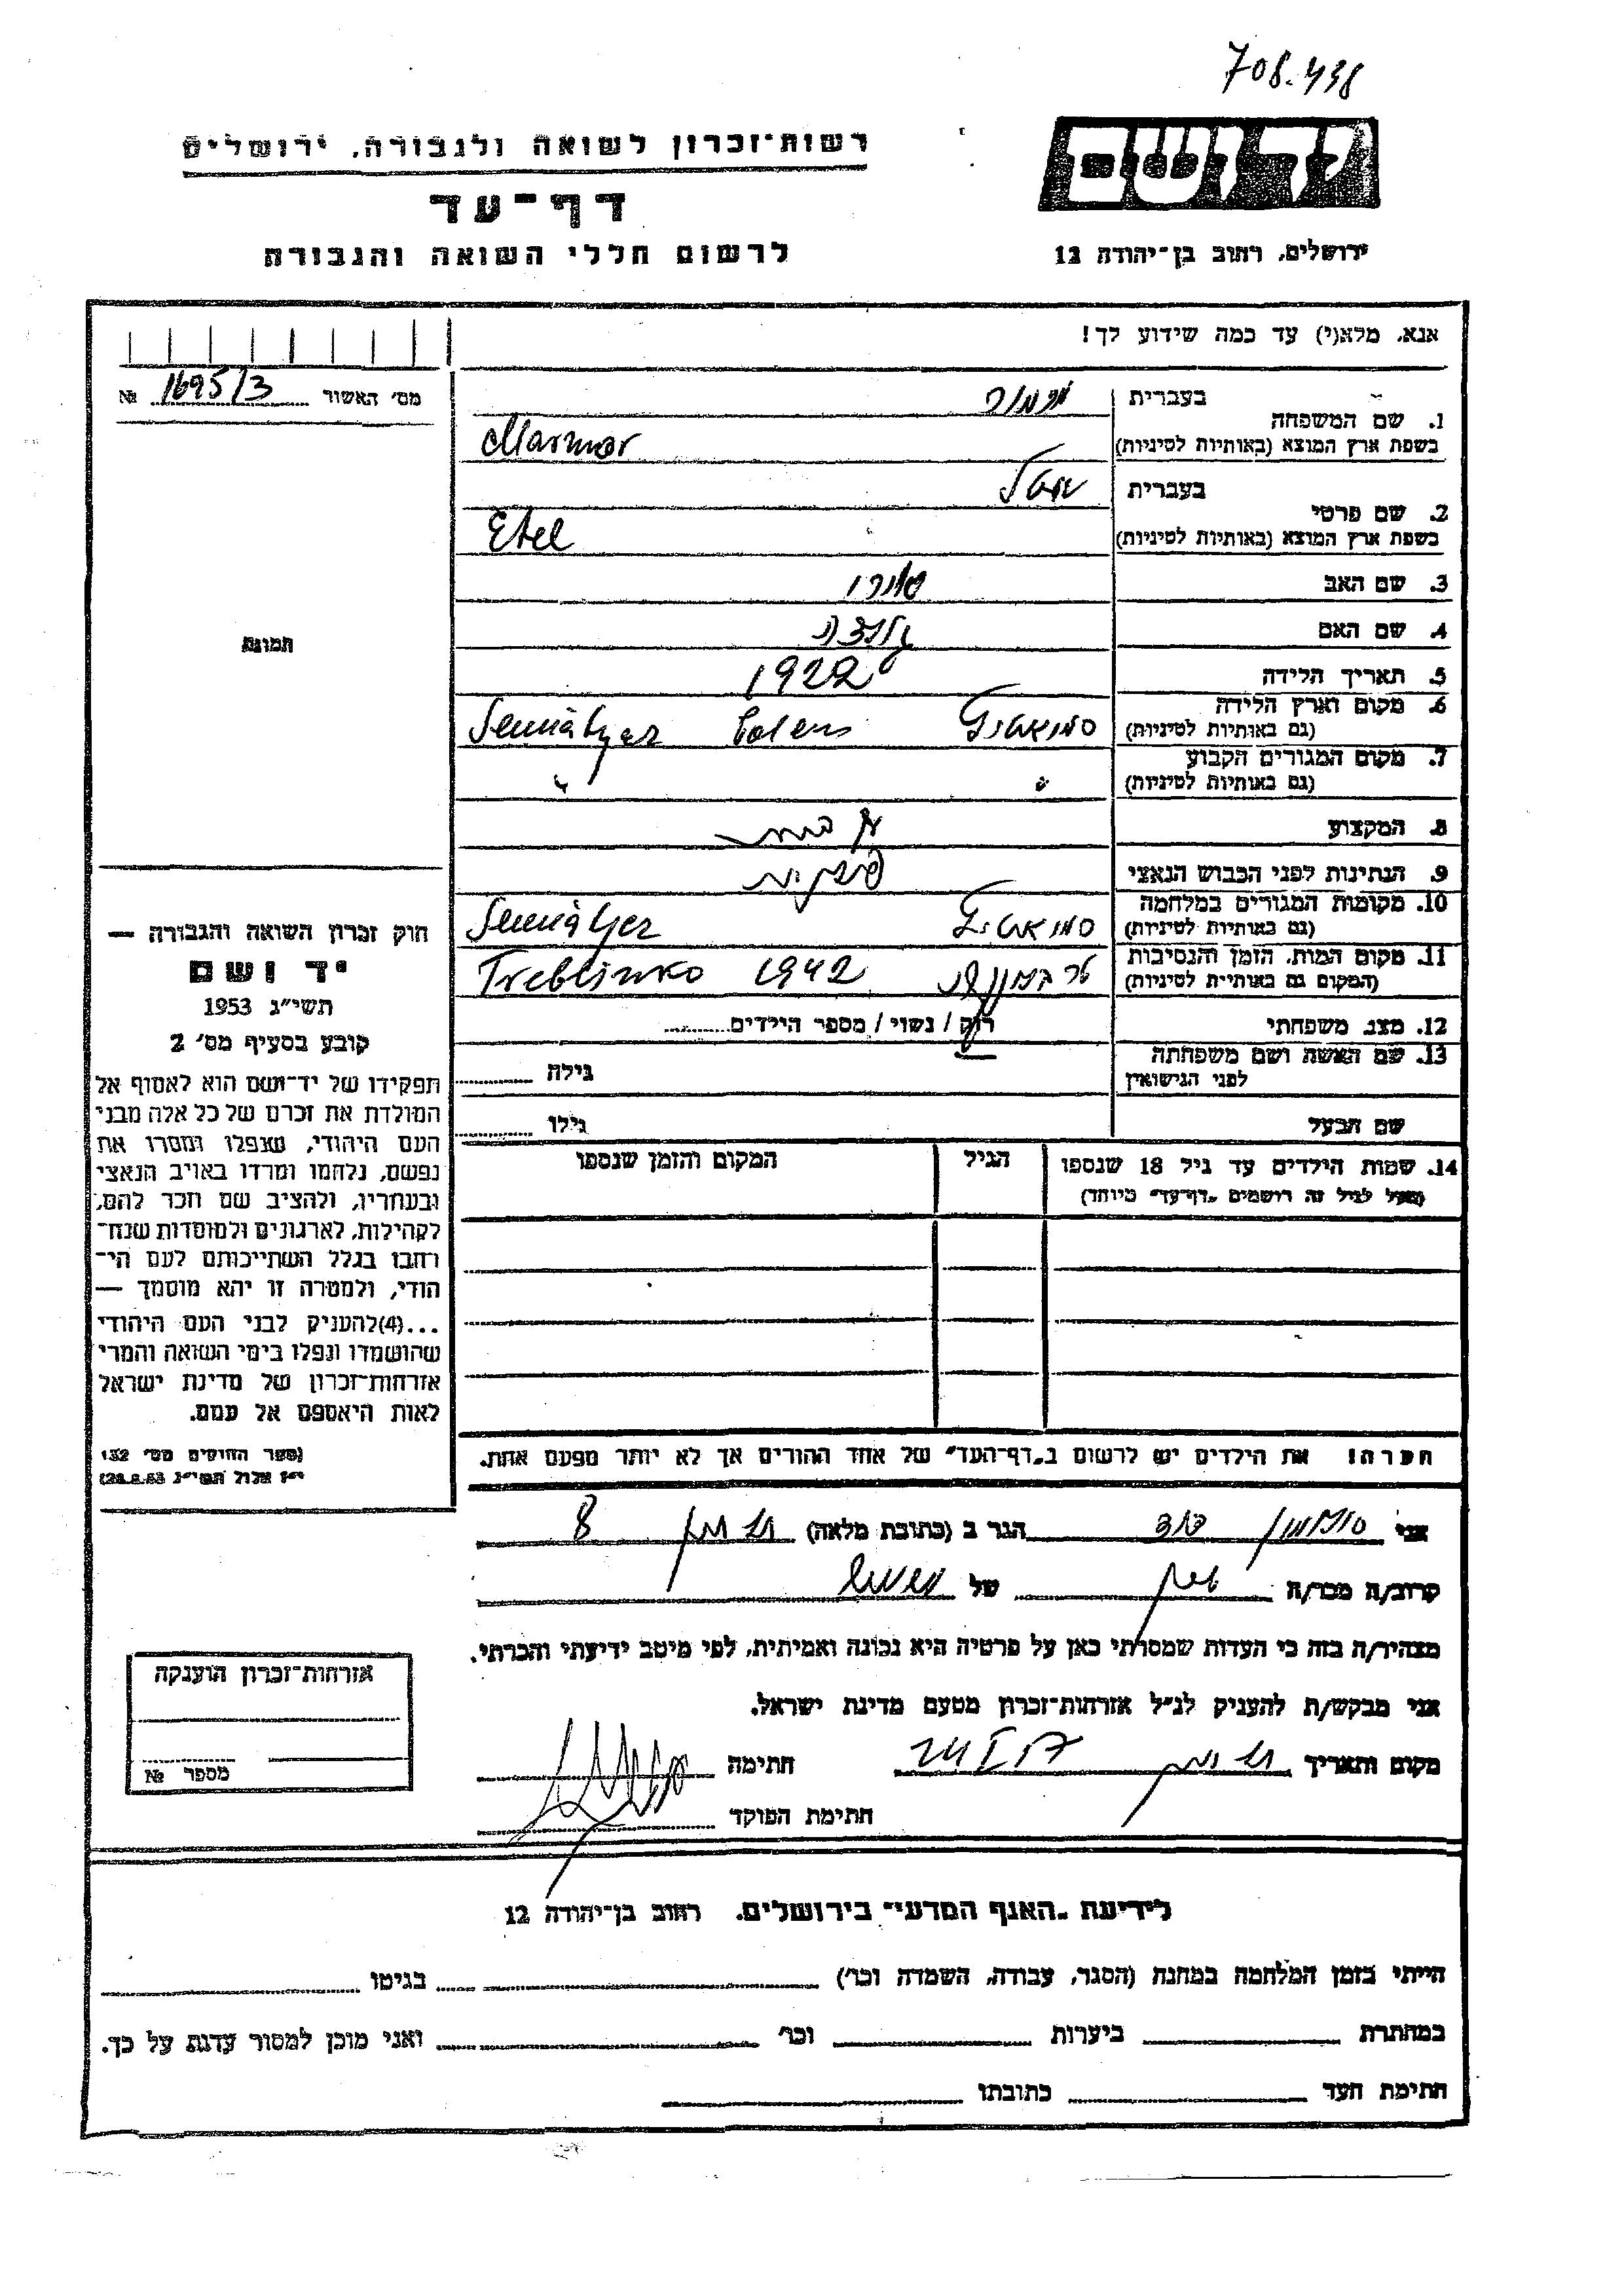 708.438
יד ושם
רשות-זכרון לשואה ולגבורה, ירושלים
דף-עד
לרשום חללי השואה והגבורה
ירושלים, רחוב בן-יהודה 12
אנא, מלא(י) עד כמה שידוע לך!
מס' האשור 1695/3 №
1. שם המשפחה
בעברית מרמור
בשפת ארץ המוצא (באותיות לטיניות) Marmor
2. שם פרטי
בעברית אטל
בשפת ארץ המוצא (באותיות לטיניות) Etel
3. שם האב
4. שם האם
5. תאריך הלידה 1922
6. מקום וארץ הלידה
(גם באותיות לטיניות)
7. מקום המגורים הקבוע
(גם באותיות לטיניות) "
8. המקצוע
9. הנתינות לפני הכבוש הנאצי
10. מקומות המגורים במלחמה
(גם באותיות לטיניות)
11. מקום המות, הזמן והנסיבות
(המקום גם באותיות לטיניות) 1942
12. מצב משפחתי רוק / נשוי / מספר הילדים
13. שם האשה ושם משפחתה
לפני הנישואין גילה
שם הבעל גילו
14. שמות הילדים עד גיל 18 שנספו הגיל המקום והזמן שנספו
(מעל לגיל זה רושמים "דף-עד" מיוחד)
הערה! את הילדים יש לרשום ב"דף-העד" של אחד ההורים אך לא יותר מפעם אחת.
תמונה
חוק זכרון השואה והגבורה —
יד ושם
תשי"ג 1953
קובע בסעיף מס' 2
תפקידו של יד-ושם הוא לאסוף אל
המולדת את זכרם של כל אלה מבני
העם היהודי, שנפלו ומסרו את
נפשם, נלחמו ומרדו באויב הנאצי
ובעוזריו, ולהציב שם וזכר להם,
לקהילות, לארגונים ולמוסדות שנח-
רבו בגלל השתייכותם לעם הי-
הודי, ולמטרה זו יהא מוסמך —
...(4)להעניק לבני העם היהודי
שהושמדו ונפלו בימי השואה והמרי
אזרחות-זכרון של מדינת ישראל
לאות היאספם אל עמם.
(ספר החוקים מס' 132
י"ז אלול תשי"ג 28.8.53)
אני הגר ב (כתובת מלאה) 8
קרוב/ה מכר/ה של
מצהיר/ה בזה כי העדות שמסרתי כאן על פרטיה היא נכונה ואמיתית, לפי מיטב ידיעתי והכרתי.
אני מבקש/ת להעניק לנ"ל אזרחות-זכרון מטעם מדינת ישראל.
מקום ותאריך חתימה
חתימת הפוקד
אזרחות-זכרון הוענקה
מספר №
לידיעת "האגף המדעי" בירושלים, רחוב בן-יהודה 12
הייתי בזמן המלחמה במחנה (הסגר, עבודה, השמדה וכו') בגיטו
במחתרת ביערות וכו' ואני מוכן למסור עדות על כך.
חתימת העד כתובתו